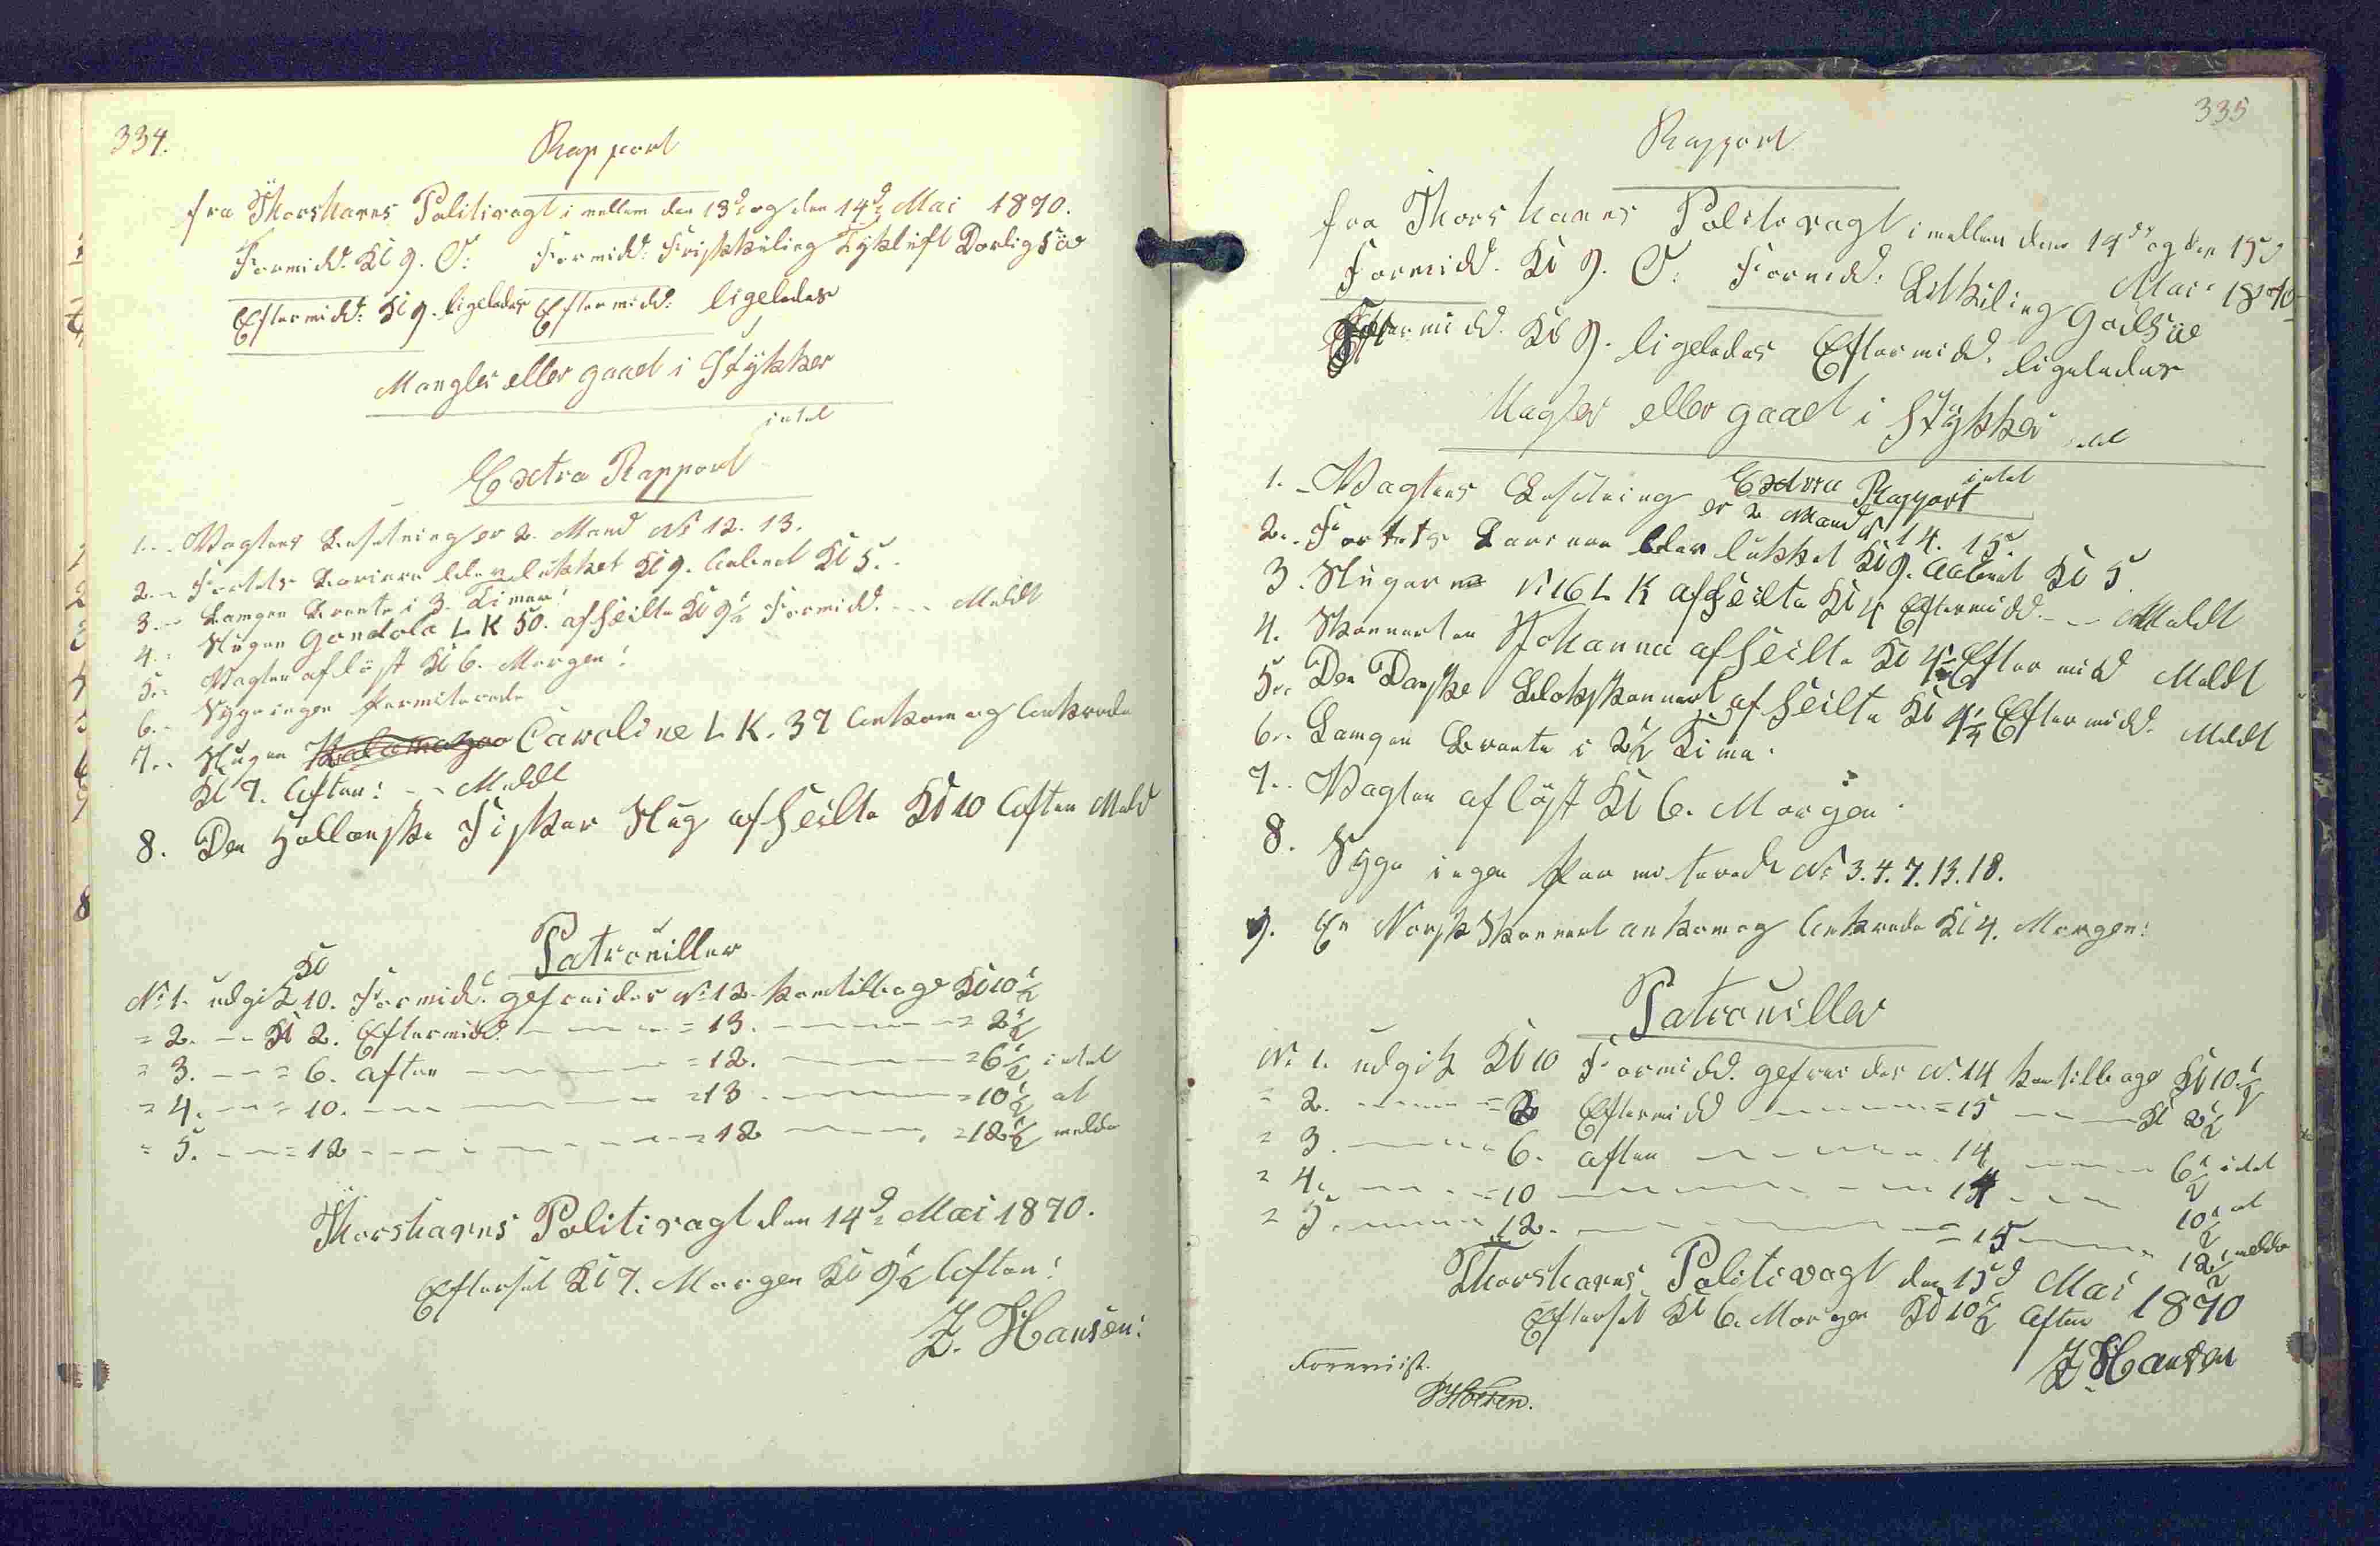 334.
Rapport
fra Thorshavns Politivagt i mellem den 13d: og den 14d: Mai 1870.
Formidd: Kl 9. O: Formidd: Friskkuling Tykluft Dorlig Söe
Eftermidd: Kl 9. ligeledes Eftermidd: ligeledes
Mangler eller gaaet i Stÿkker
intet
Extra Rapport
1. Vagtens Besetning er 2. Mand No 12. 13.
2. Fortets Bariere blev lukket Kl 9. Aabnet Kl 5.
3. Lampen Brænte i 3. Timer!
4. Slupen Gondola L K 50. afseilte Kl 9½ Formidd. Meldt
5. Vagten aflöst Kl 6. Morgen!
6. Syge ingen Permiterede
7. Slupen Caroline L K. 37 Ankom og Ankrede
Kl 7. Aften! Meldt
8. Den Hollanske Fisker Slup afseilte Kl 10 Aften Meld
Patrouiller
Kl
No 1. udgik 10. Formidd. gefreider No 12. kom tilbage Kl 10½
= 2. Kl 2. Eftermidd. = 13. = 2½
= 3. = 6. aften = 12. = 6½ intet
= 4. = 10. = 13 = 10½ at
= 5. = 12 = 12 = 12½ melde
Thorshavns Politivagt den 14d: Mai 1870.
Efterset Kl 7. Morgen Kl 9½ Aften!
J. Hansen:
335
Rapport
fra Thorshavns Politivagt i mellem den 14d og den 15d
Mai 1870
Formidd. Kl 9. O: Formidd: Letkuling God Söe
Eftermidd. Kl 9. ligeledes Eftermidd. ligeledes
Magler eller gaaet i Stÿkker
intet
Extra Rapport
1. Vagtens Besetning er 2 Mand No 14. 15.
2. Fortets Bariere blev lukket Kl 9. Aabnet Kl 5.
3. Slupen No 16 L K afseilte Kl 4 Eftermidd. Meldt
4. Skonnerten Johanna afseilte Kl 4 Eftermidd Meldt
5. Den Danske Skonnert afseilte Kl 4½ Eftermidd. Meldt
6. Lampen Brænte i 2½ Time.
7. Vagten aflöst Kl 6. Morgen.
8. Syge ingen Permiterede No 3. 4. 7. 13. 18.
9. En Norsk Skonnert ankom og Ankrede Kl 4. Morgen!
Patrouiller
No 1. udgik Kl 10 Formidd. gefreider No. 14 kom tilbage Kl 10½
= 2. = 2 Eftermidd = 15 Kl 2½
= 3. 6. aften 14 6½ intet
= 4. = 10 14 10½ at
= 5. 12. = 15 12½ melde
Thorshavns Politivagt den 15d Mai 1870
Efterset Kl 6. Morgen Kl 10½ Aften
J. Hansen
Forevist.